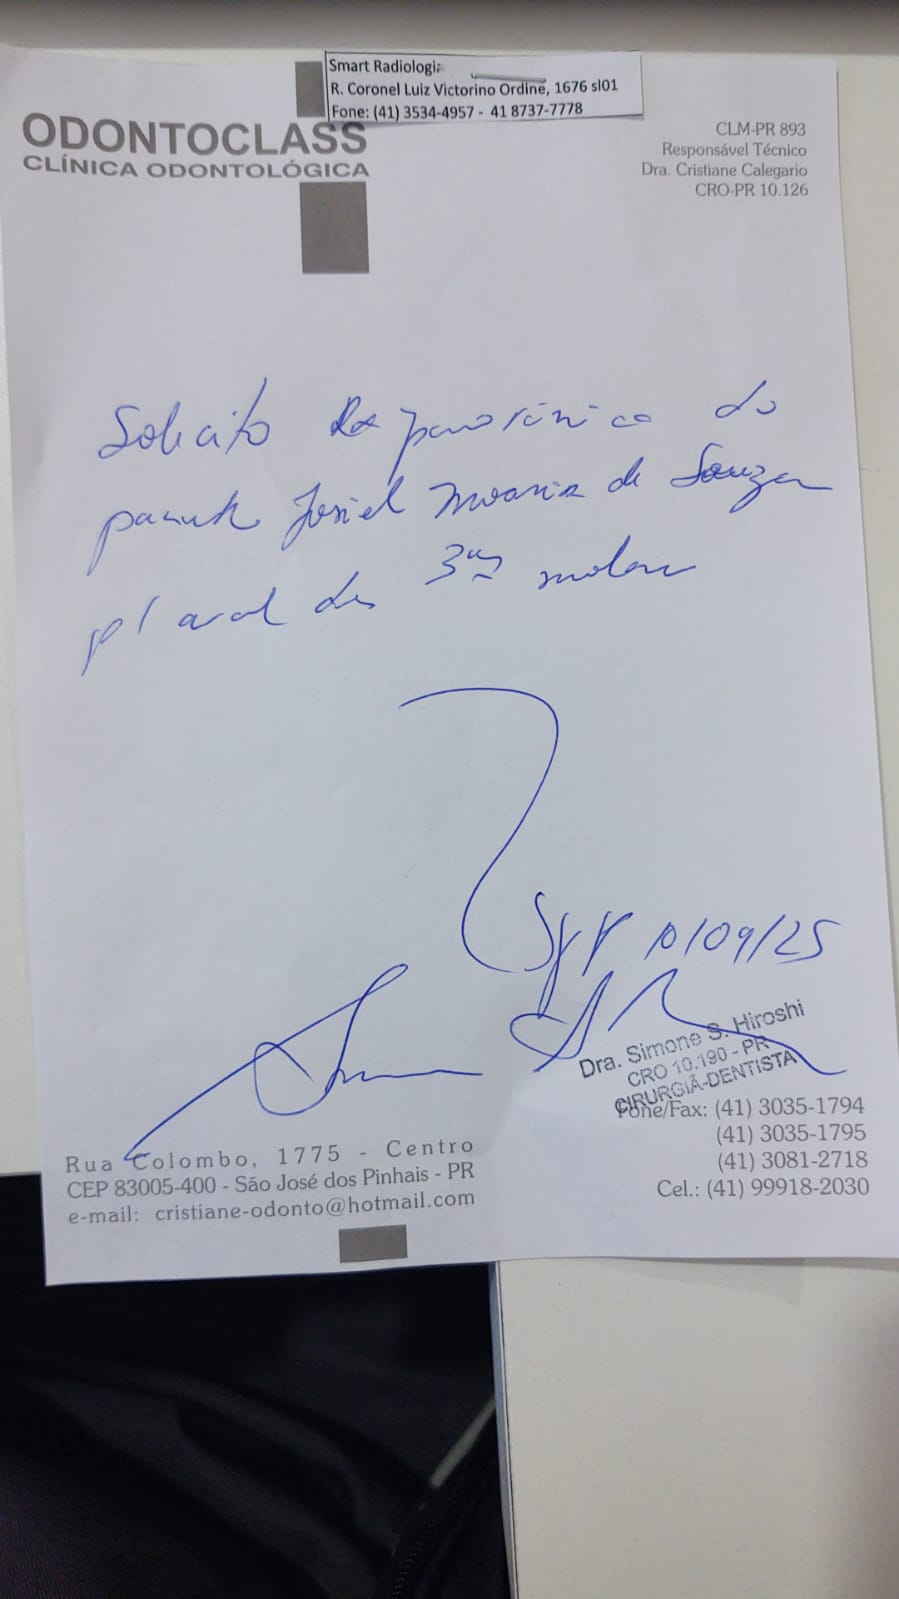 Smart Radologia
R. Coronel Luiz Victorino Ordine, 1676 sl01
Fone: (41) 3534-4957 - 41 8737-7778
ODONTOCLASS
CLÍNICA ODONTOLÓGICA
CLM-PR 893
Responsável Técnico
Dra. Cristiane Calegario
CRO-PR 10.126
Solicito Rx panorâmica do
paciente Josiel Moariz de Souza
p/ aval des 3os molares
SJP 10/09/25
Dra. Simone S. Hiroshi
CRO 10.190 - PR
CIRURGIÃ-DENTISTA
Rua Colombo, 1775 - Centro
CEP 83005-400 - São José dos Pinhais - PR
e-mail: cristiane-odonto@hotmail.com
Fone/Fax: (41) 3035-1794
(41) 3035-1795
(41) 3081-2718
Cel.: (41) 99918-2030